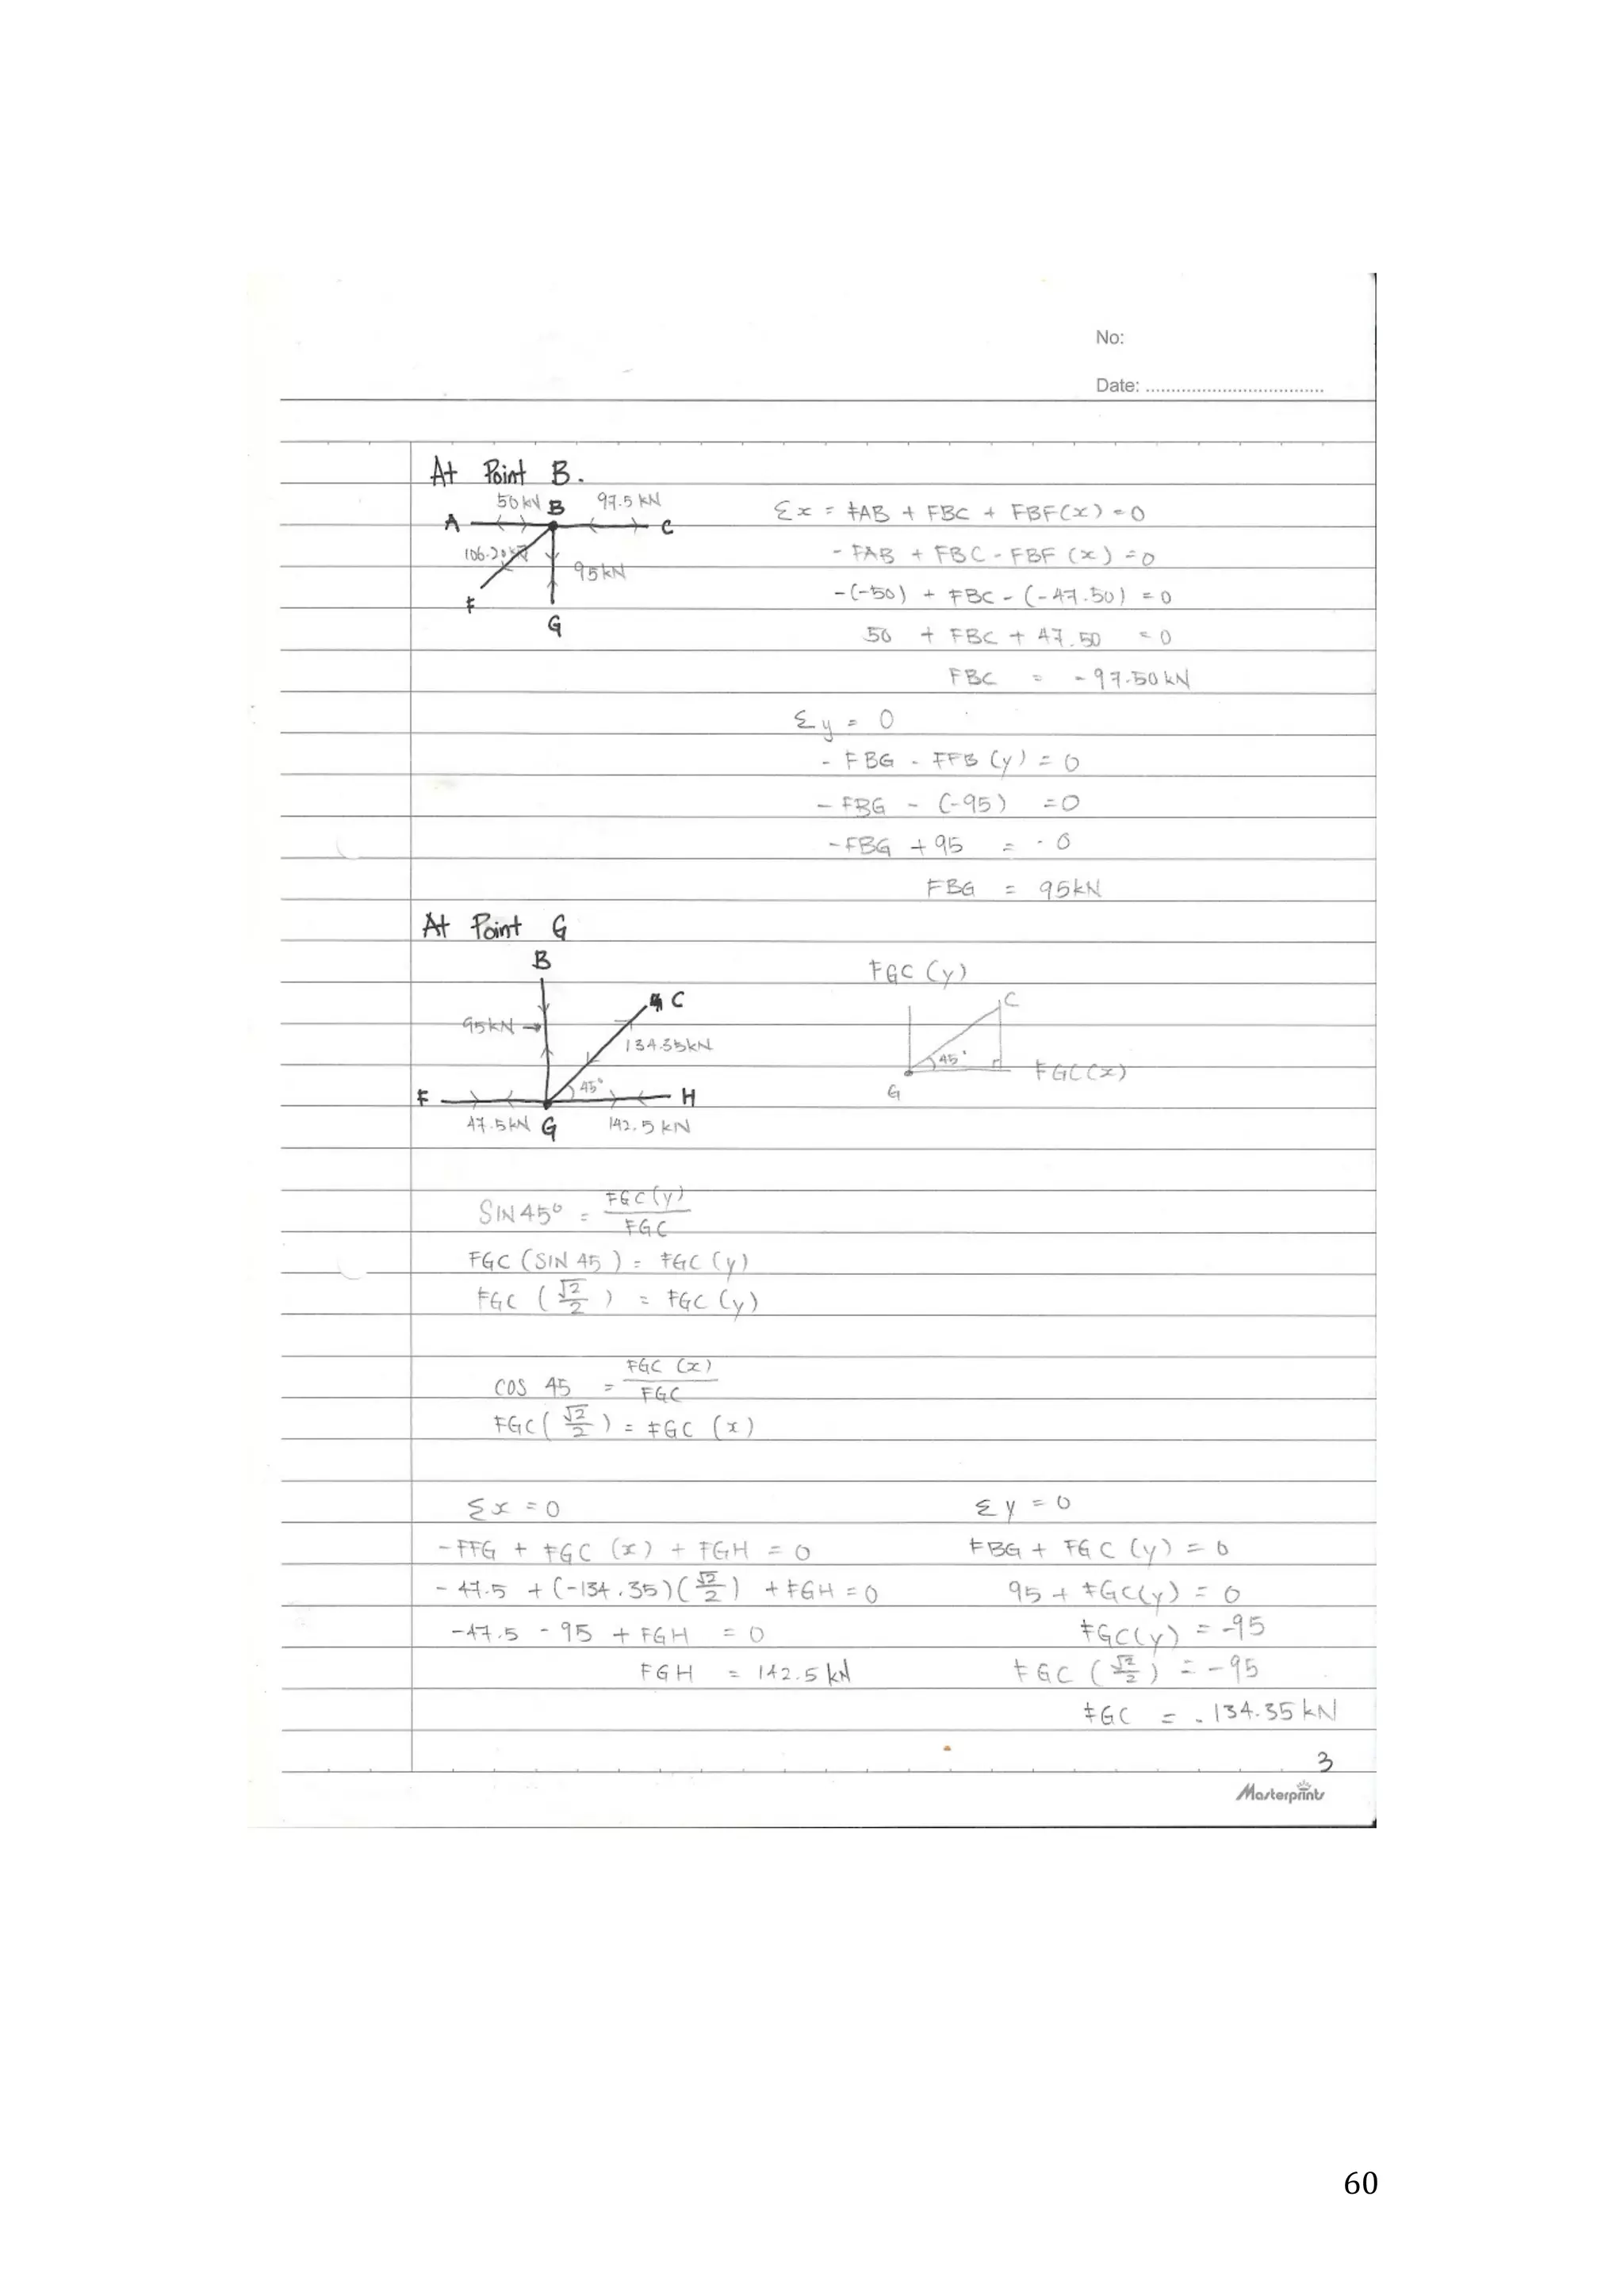 No:
Date: ..................................
At Point B.
50 kN B 97.5 kN
A C
106.20kN
95kN
F
G
Σx = FAB + FBC + FBF(x) = 0
- FAB + FBC - FBF (x) = 0
-(-50) + FBC - (-47.50) = 0
50 + FBC + 47.50 = 0
FBC = - 97.50 kN
Σy = 0
- FBG - FFB (y) = 0
- FBG - (-95) = 0
-FBG + 95 = 0
FBG = 95kN
At Point G
B
C
95kN
134.35kN
45°
F H
47.5kN G 142.5 kN
FGC (y)
C
45°
FGC(x)
G
SIN 45° = FGC(y)
FGC
FGC (SIN 45) = FGC (y)
FGC (√2/2) = FGC (y)
COS 45 = FGC (x)
FGC
FGC(√2/2) = FGC (x)
Σx = 0
-FFG + FGC (x) + FGH = 0
- 47.5 + (-134.35)(√2/2) + FGH = 0
-47.5 - 95 + FGH = 0
FGH = 142.5 kN
Σy = 0
FBG + FGC (y) = 0
95 + FGC(y) = 0
FGC(y) = -95
FGC (√2/2) = -95
FGC = - 134.35 kN
3
Masterprints
60